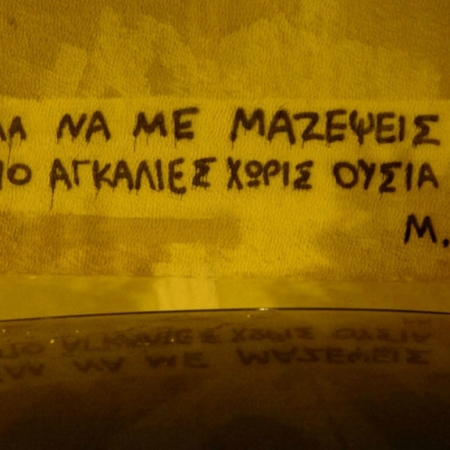 ΝΑ ΜΕ ΜΑΖΕΨΕΙΣ
ΑΓΚΑΛΙΕΣ ΧΩΡΙΣ ΟΥΣΙΑ
Μ.